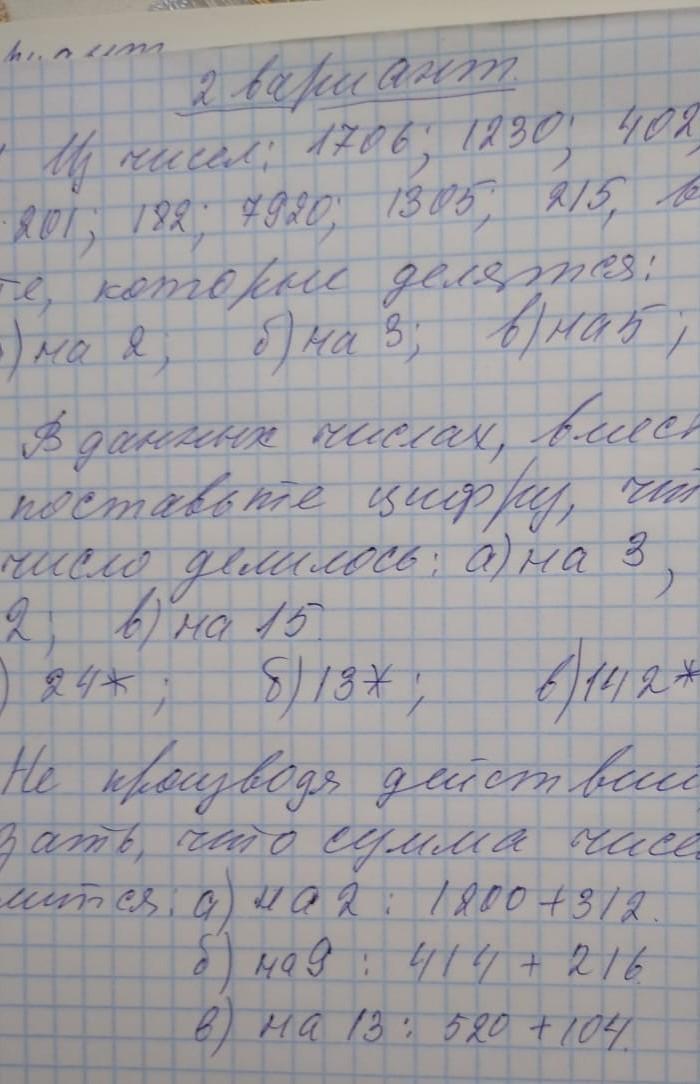 2 вариант.
Из чисел: 1706; 1230; 402,
201; 182; 7920; 1305; 215, в
те, которые делятся:
) на 2; б) на 3; в) на 5;
В данных числах, вмест
поставьте цифру, чт
число делилось: а) на 3,
2; в) на 15.
) 24*; б) 13*; в) 142*
Не производя действий
зать, что сумма чисе
лится: а) на 2: 1200 + 312.
б) на 9: 414 + 216
в) на 13: 520 + 104.